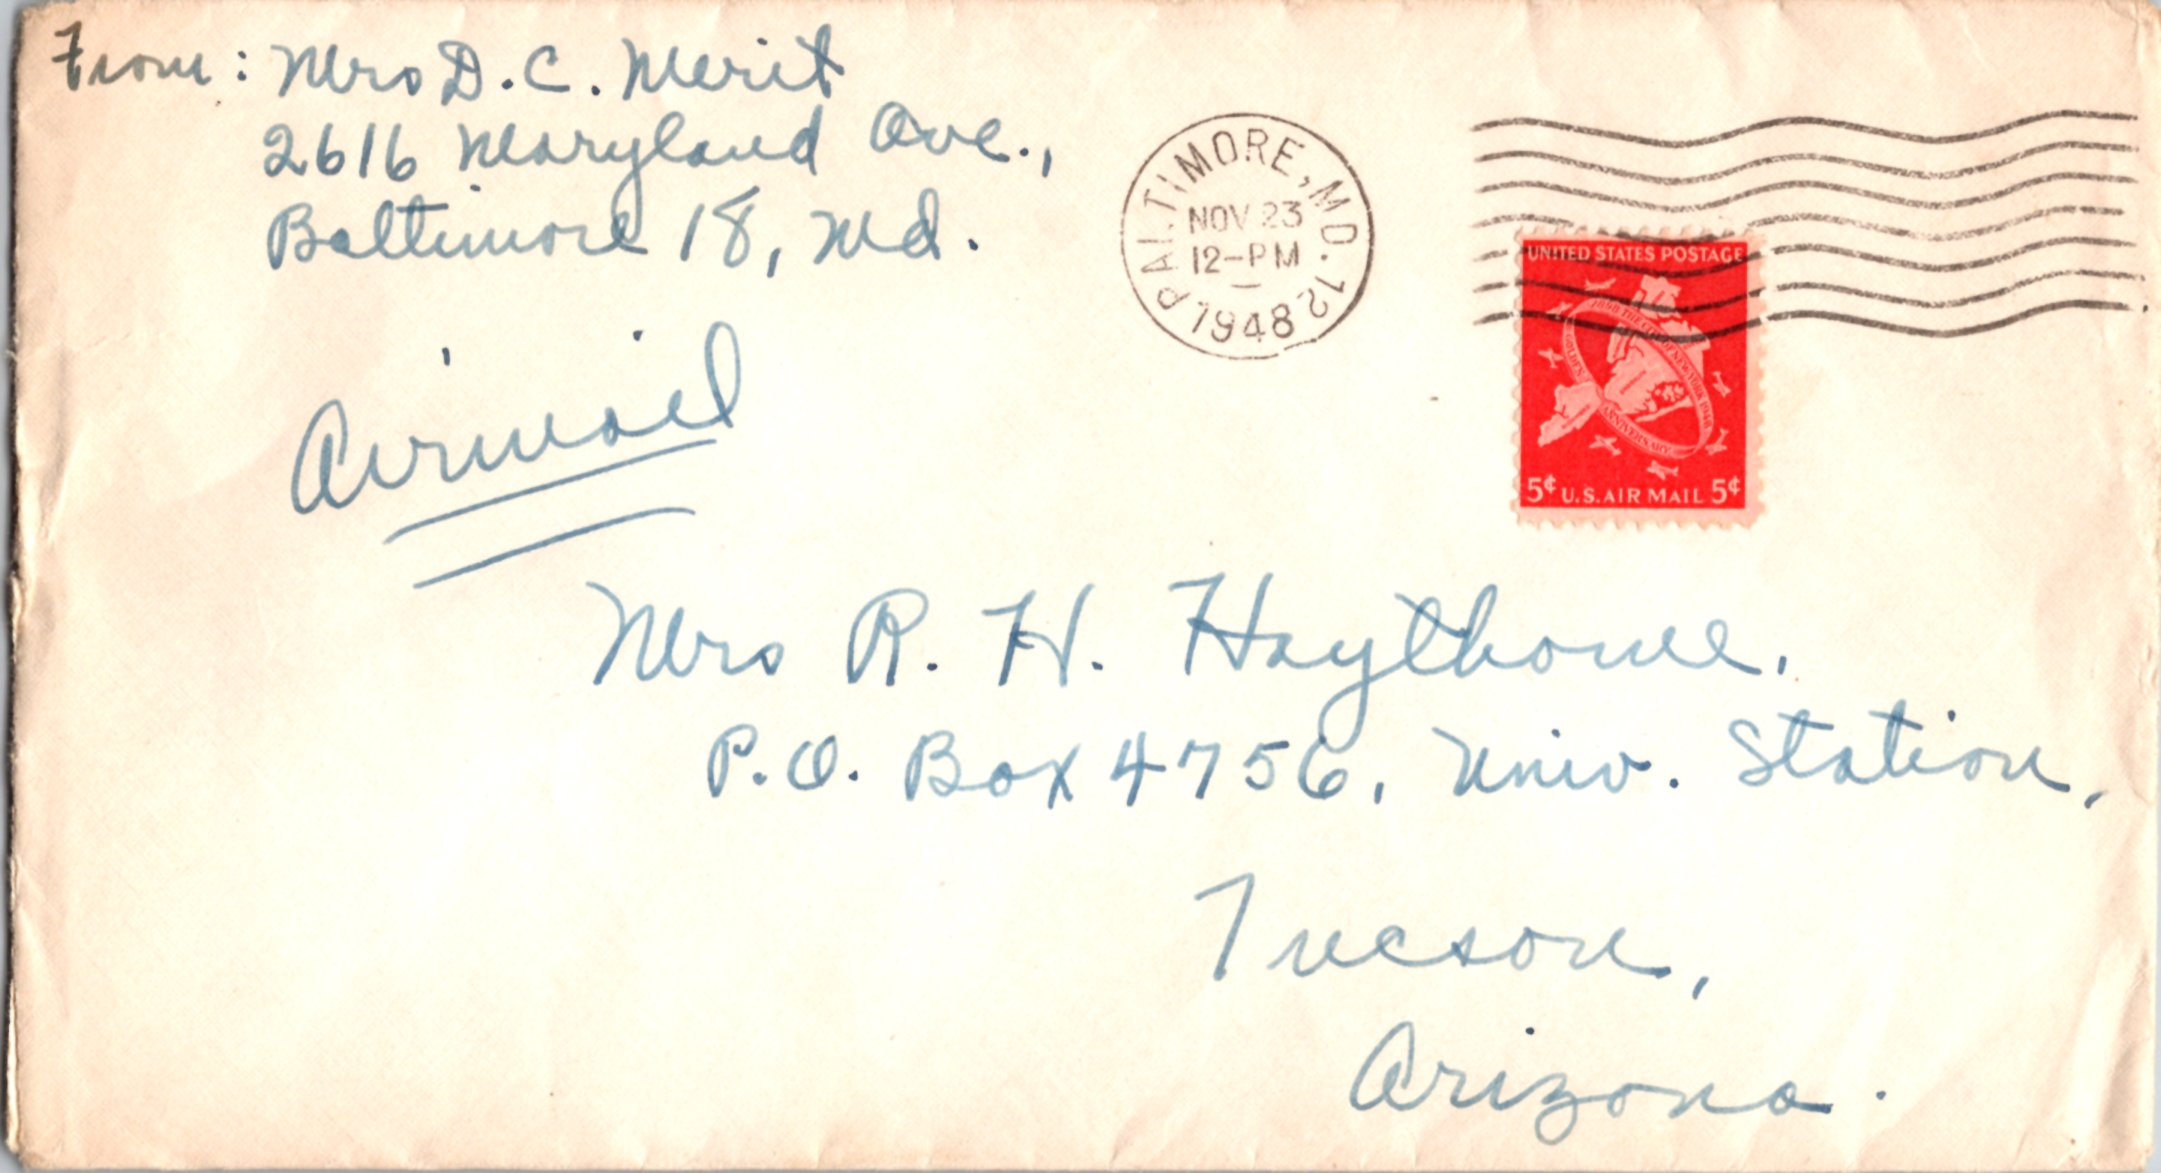 From: Mrs D. C. Merit
2616 Maryland Ave.,
Baltimore 18, Md.
BALTIMORE, MD. 12
NOV 23
12-PM
1948
UNITED STATES POSTAGE
1898 THE GOLDEN NEW YORK 1948
GOLDEN
ANNIVERSARY
5¢ U.S. AIR MAIL 5¢
Airmail
Mrs R. H. Haythorne,
P.O. Box 4756, Univ. Station,
Tucson,
Arizona.